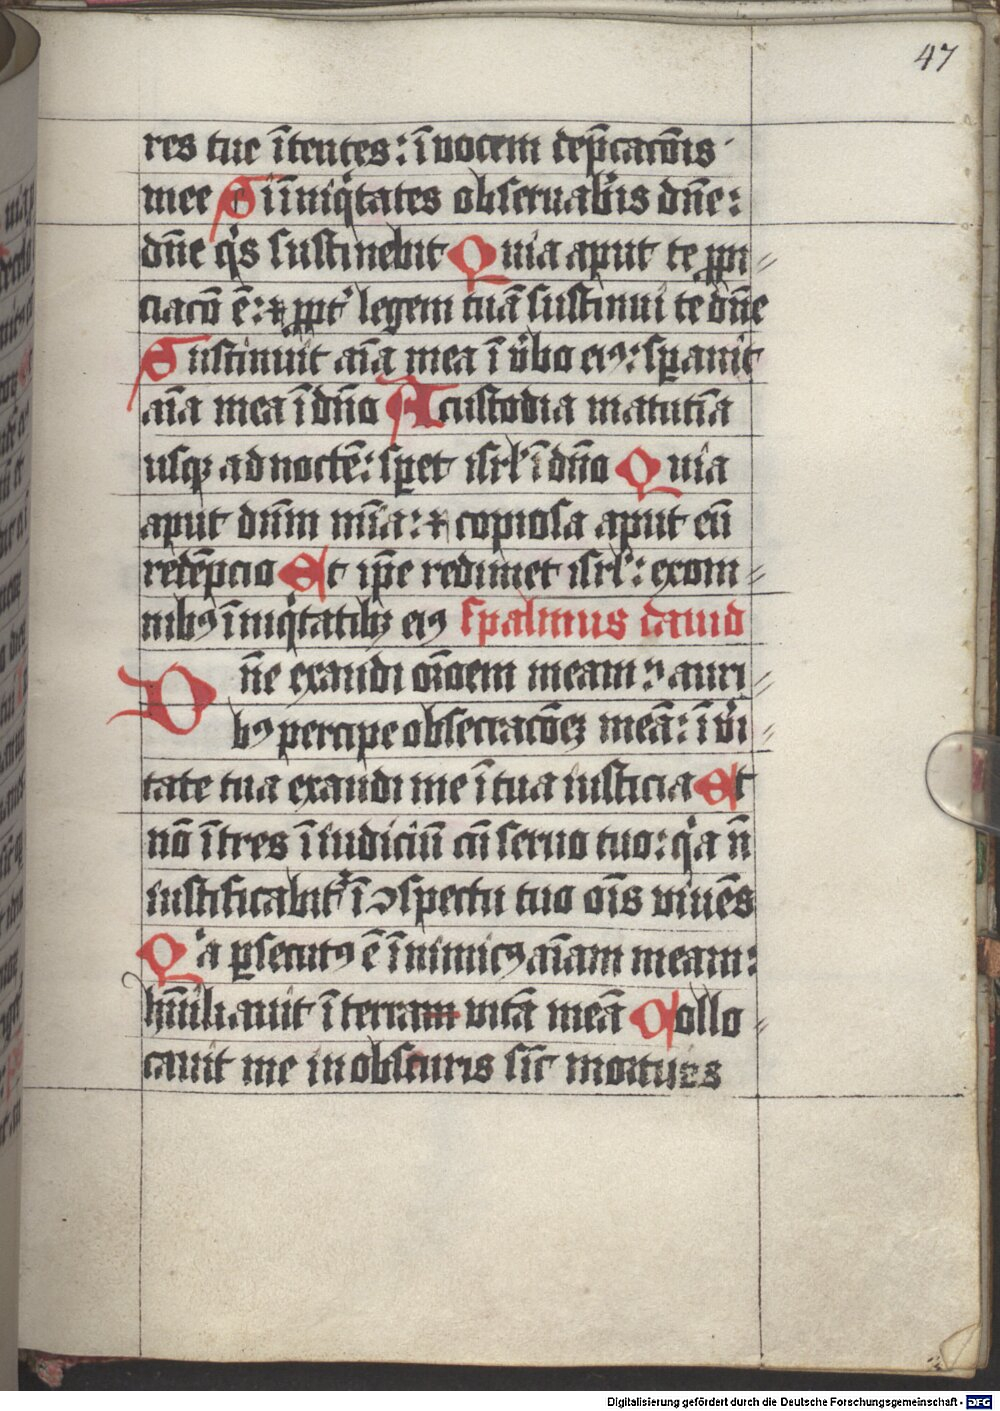 47
res tue ītentes: ī vocem dep̄cacōis
mee Si īniqͥtates obseruab͛is dn̄e:
dn̄e qͥs sustinebit Quia aput te ꝓpi⸗
ciacō ē: ⁊ ꝓpt͛ legem tuā sustinui te dn̄e
Sustinuit aīa mea ī v͛bo eiꝰ: sꝑauit
aīa mea ī dn̄o A custodia matutīa
usqꝫ ad noctē: sꝑet isrl̓ ī dn̄o Quia
aput dn̄m mīa: ⁊ copiosa aput eū
redēpcio Et ip̄e redimet isrl̓: ex om⸗
nibꝰ īniqͥtatibꝫ eiꝰ spalmus dauid
Dn̄e exaudi orōem meam: auri⸗
bꝰ percipe obsecracōeꝫ meā: ī v͛i⸗
tate tua exaudi me ī tua iusticia Et
nō ītres ī iudiciū cū seruo tuo: qͥa n̄
iustificabit͛ ī ↄspectu tuo oīs viuēs
Qͥa ꝑsecutꝰ ē īnimicꝰ aīam meam:
hūiliauit ī terram vitā meā Collo⸗
cauit me in obscuris sic̄ mortuos
Digitalisierung gefördert durch die Deutsche Forschungsgemeinschaft - DFG